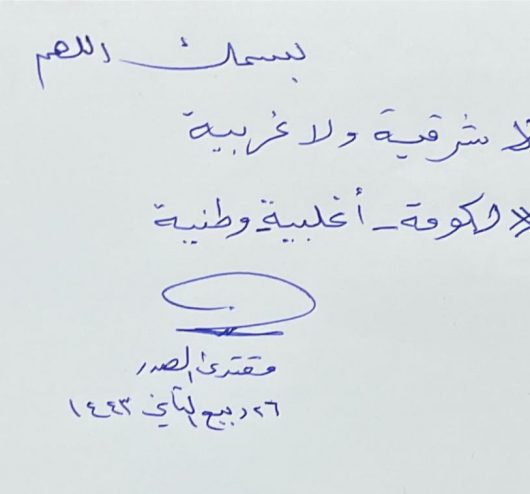 بسمك اللهم
لا شرقية ولا غربية
»حكومة - أغلبية وطنية
مقتدى الصدر
٢٦ ربيع الثاني ١٤٤٣